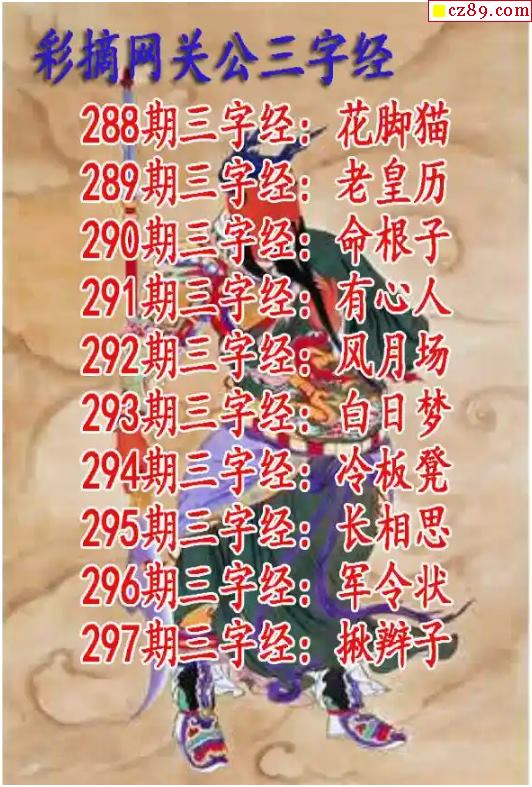 cz89.com
彩摘网关公三字经
288期三字经：花脚猫
289期三字经：老皇历
290期三字经：命根子
291期三字经：有心人
292期三字经：风月场
293期三字经：白日梦
294期三字经：冷板凳
295期三字经：长相思
296期三字经：军令状
297期三字经：揪辫子